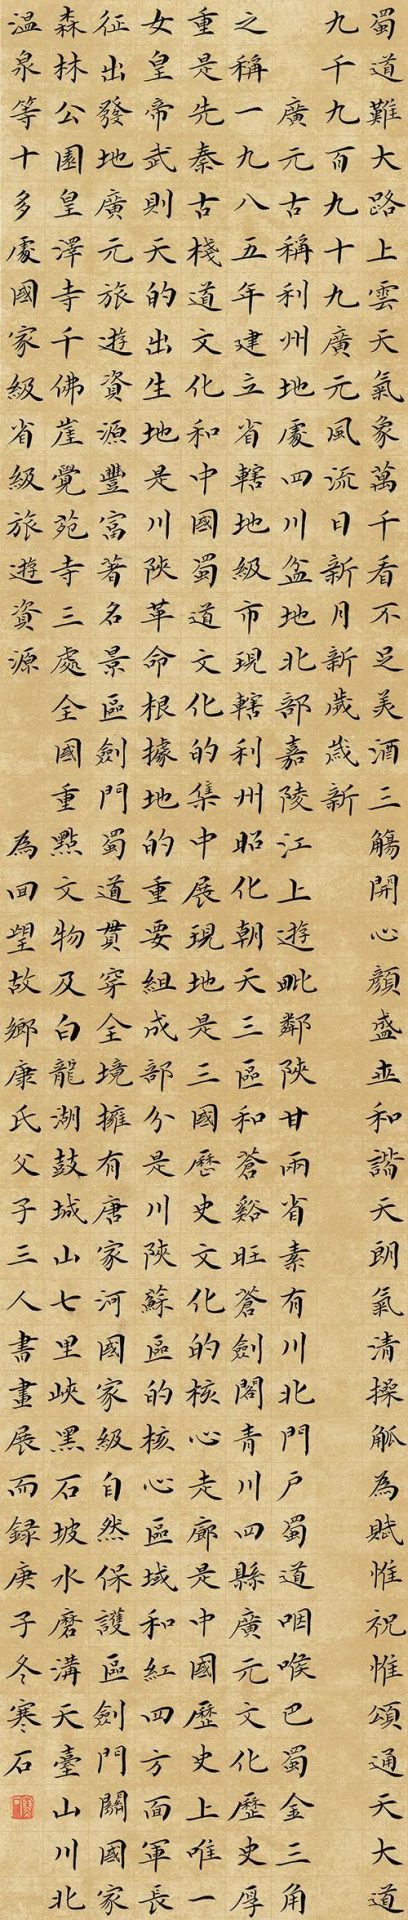 蜀道難大路上雲天氣象萬千看不足美酒三觴開心顏盛世和諧天朗氣清操觚為賦惟祝惟頌通天大道
九千九百九十九廣元風流日新月新歲歲新
廣元古稱利州地處四川盆地北部嘉陵江上遊毗鄰陝甘雨省素有川北門戶蜀道咽喉巴蜀金三角
之稱一九八五年建立省轄地級市現轄利州昭化朝天三區和蒼谿旺蒼劍閣青川四縣廣元文化歷史厚
重是先秦古棧道文化和中國蜀道文化的集中展現地是三國歷史文化的核心走廊是中國歷史上唯一
女皇帝武則天的出生地是川陝革命根據地的重要組成部分是川陝蘇區的核心區域和紅四方面軍長
征出發地廣元旅遊資源豐富著名景區劍門蜀道貫穿全境擁有唐家河國家級自然保護區劍門關國家
森林公園皇澤寺千佛崖覺苑寺三處全國重點文物及白龍湖鼓城山七里峽黑石坡水磨溝天臺山川北
溫泉等十多處國家級省級旅遊資源 為回望故鄉康氏父子三人書畫展而録庚子冬寒石